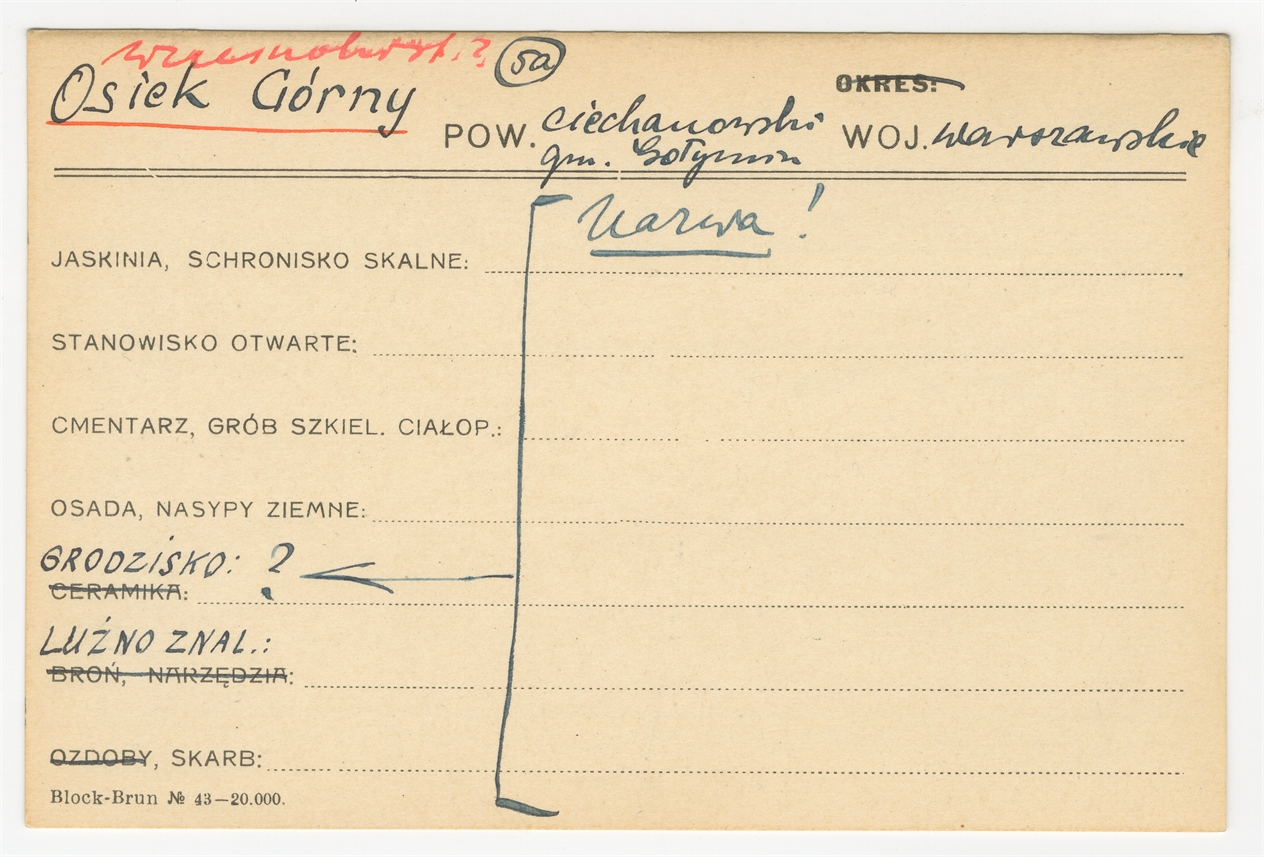 wczesnohist.?
Osiek Górny
5a
OKRES:
POW. ciechanowski WOJ. warszawskie
gm. Gołymin
Nazwa!
JASKINIA, SCHRONISKO SKALNE:
STANOWISKO OTWARTE:
CMENTARZ, GRÓB SZKIEL. CIAŁOP.:
OSADA, NASYPY ZIEMNE:
GRODZISKO: ?
CERAMIKA:
LUŹNO ZNAL.:
BROŃ, NARZĘDZIA:
OZDOBY, SKARB:
Block-Brun № 43—20.000.